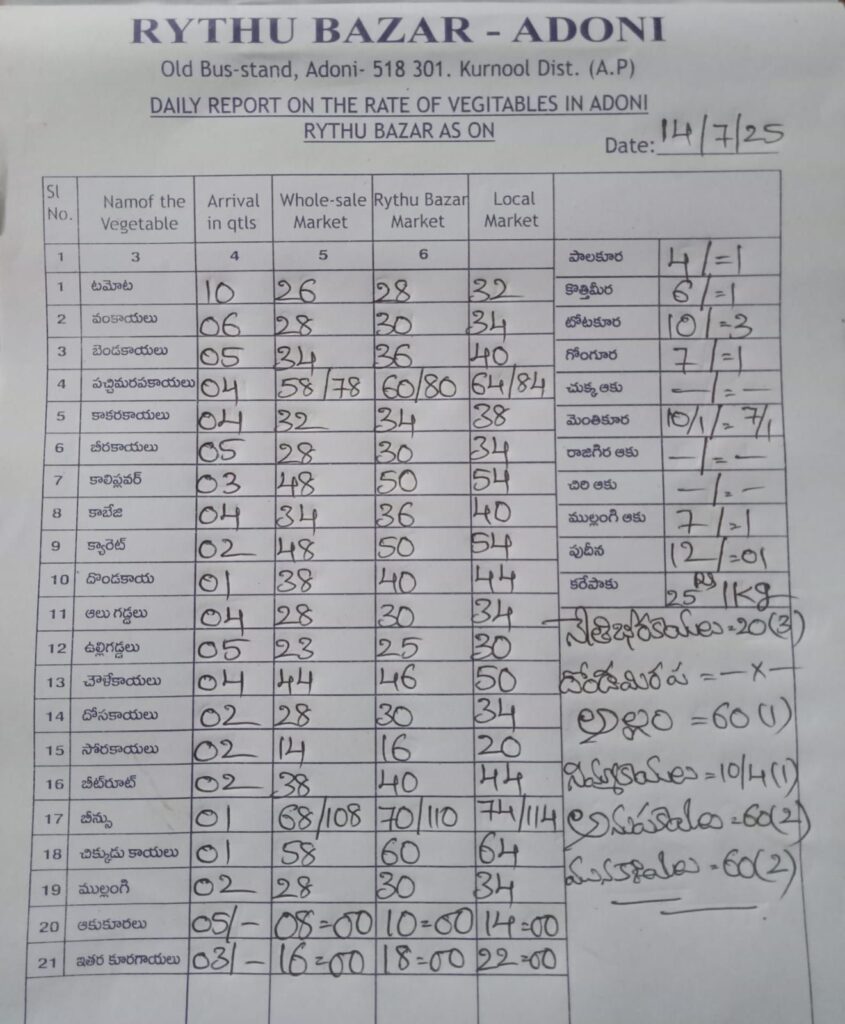 RYTHU BAZAR - ADONI
Old Bus-stand, Adoni- 518 301. Kurnool Dist. (A.P)
DAILY REPORT ON THE RATE OF VEGITABLES IN ADONI
RYTHU BAZAR AS ON
Date: 14/7/25
Sl No. Namof the Vegetable Arrival in qtls Whole-sale Market Rythu Bazar Market Local Market
1 3 4 5 6
1 టమోట 10 26 28 32
2 వంకాయలు 06 28 30 34
3 బెండకాయలు 05 34 36 40
4 పచ్చిమిరపకాయలు 04 58/78 60/80 64/84
5 కాకరకాయలు 04 32 34 38
6 బీరకాయలు 05 28 30 34
7 కాలిఫ్లవర్ 03 48 50 54
8 కాబేజి 04 34 36 40
9 క్యారెట్ 02 48 50 54
10 దొండకాయ 01 38 40 44
11 ఆలు గడ్డలు 04 28 30 34
12 ఉల్లిగడ్డలు 05 23 25 30
13 చౌళేకాయలు 04 44 46 50
14 దోసకాయలు 02 28 30 34
15 సోరకాయలు 02 14 16 20
16 బీట్‌రూట్ 02 38 40 44
17 బీన్సు 01 68/108 70/110 74/114
18 చిక్కుడు కాయలు 01 58 60 64
19 ముల్లంగి 02 28 30 34
20 ఆకుకూరలు 05/- 08=00 10=00 14=00
21 ఇతర కూరగాయలు 03/- 16=00 18=00 22=00
పాలకూర 4/=1
కొత్తిమీర 6/=1
టోటకూర 10/=3
గోంగూర 7/=1
చుక్క ఆకు —/=—
మెంతికూర 10/1/=7/1
రాజగిర ఆకు —/=—
చిరి ఆకు —/=—
ముల్లంగి ఆకు 7/=1
పుదీన 12/=01
కరేపాకు 25 Rs 1Kg
నేతిబీరకాయలు=20(3)
=—x—
అల్లం =60(1)
నిమ్మకాయలు=10/4(1)
అనపకాయలు=60(2)
మునకాయలు=60(2)